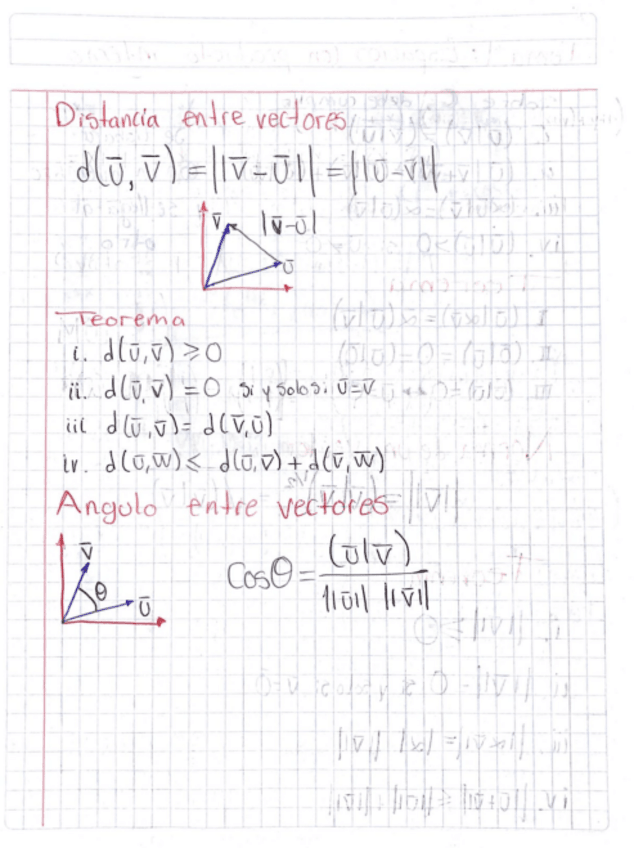 Distancia entre vectores
d(ū, v̄) = ||v̄-ū|| = ||ū-v̄||
v̄ |v̄-ū|
ū
Teorema
i. d(ū,v̄) ≥ 0
ii. d(ū,v̄) = 0 si y solo si ū=v̄
iii d(ū,v̄) = d(v̄,ū)
iv. d(ū,w̄) ≤ d(ū,v̄) + d(v̄,w̄)
Angulo entre vectores
v̄
θ ū
Cosθ = (ū|v̄) / ||ū|| ||v̄||